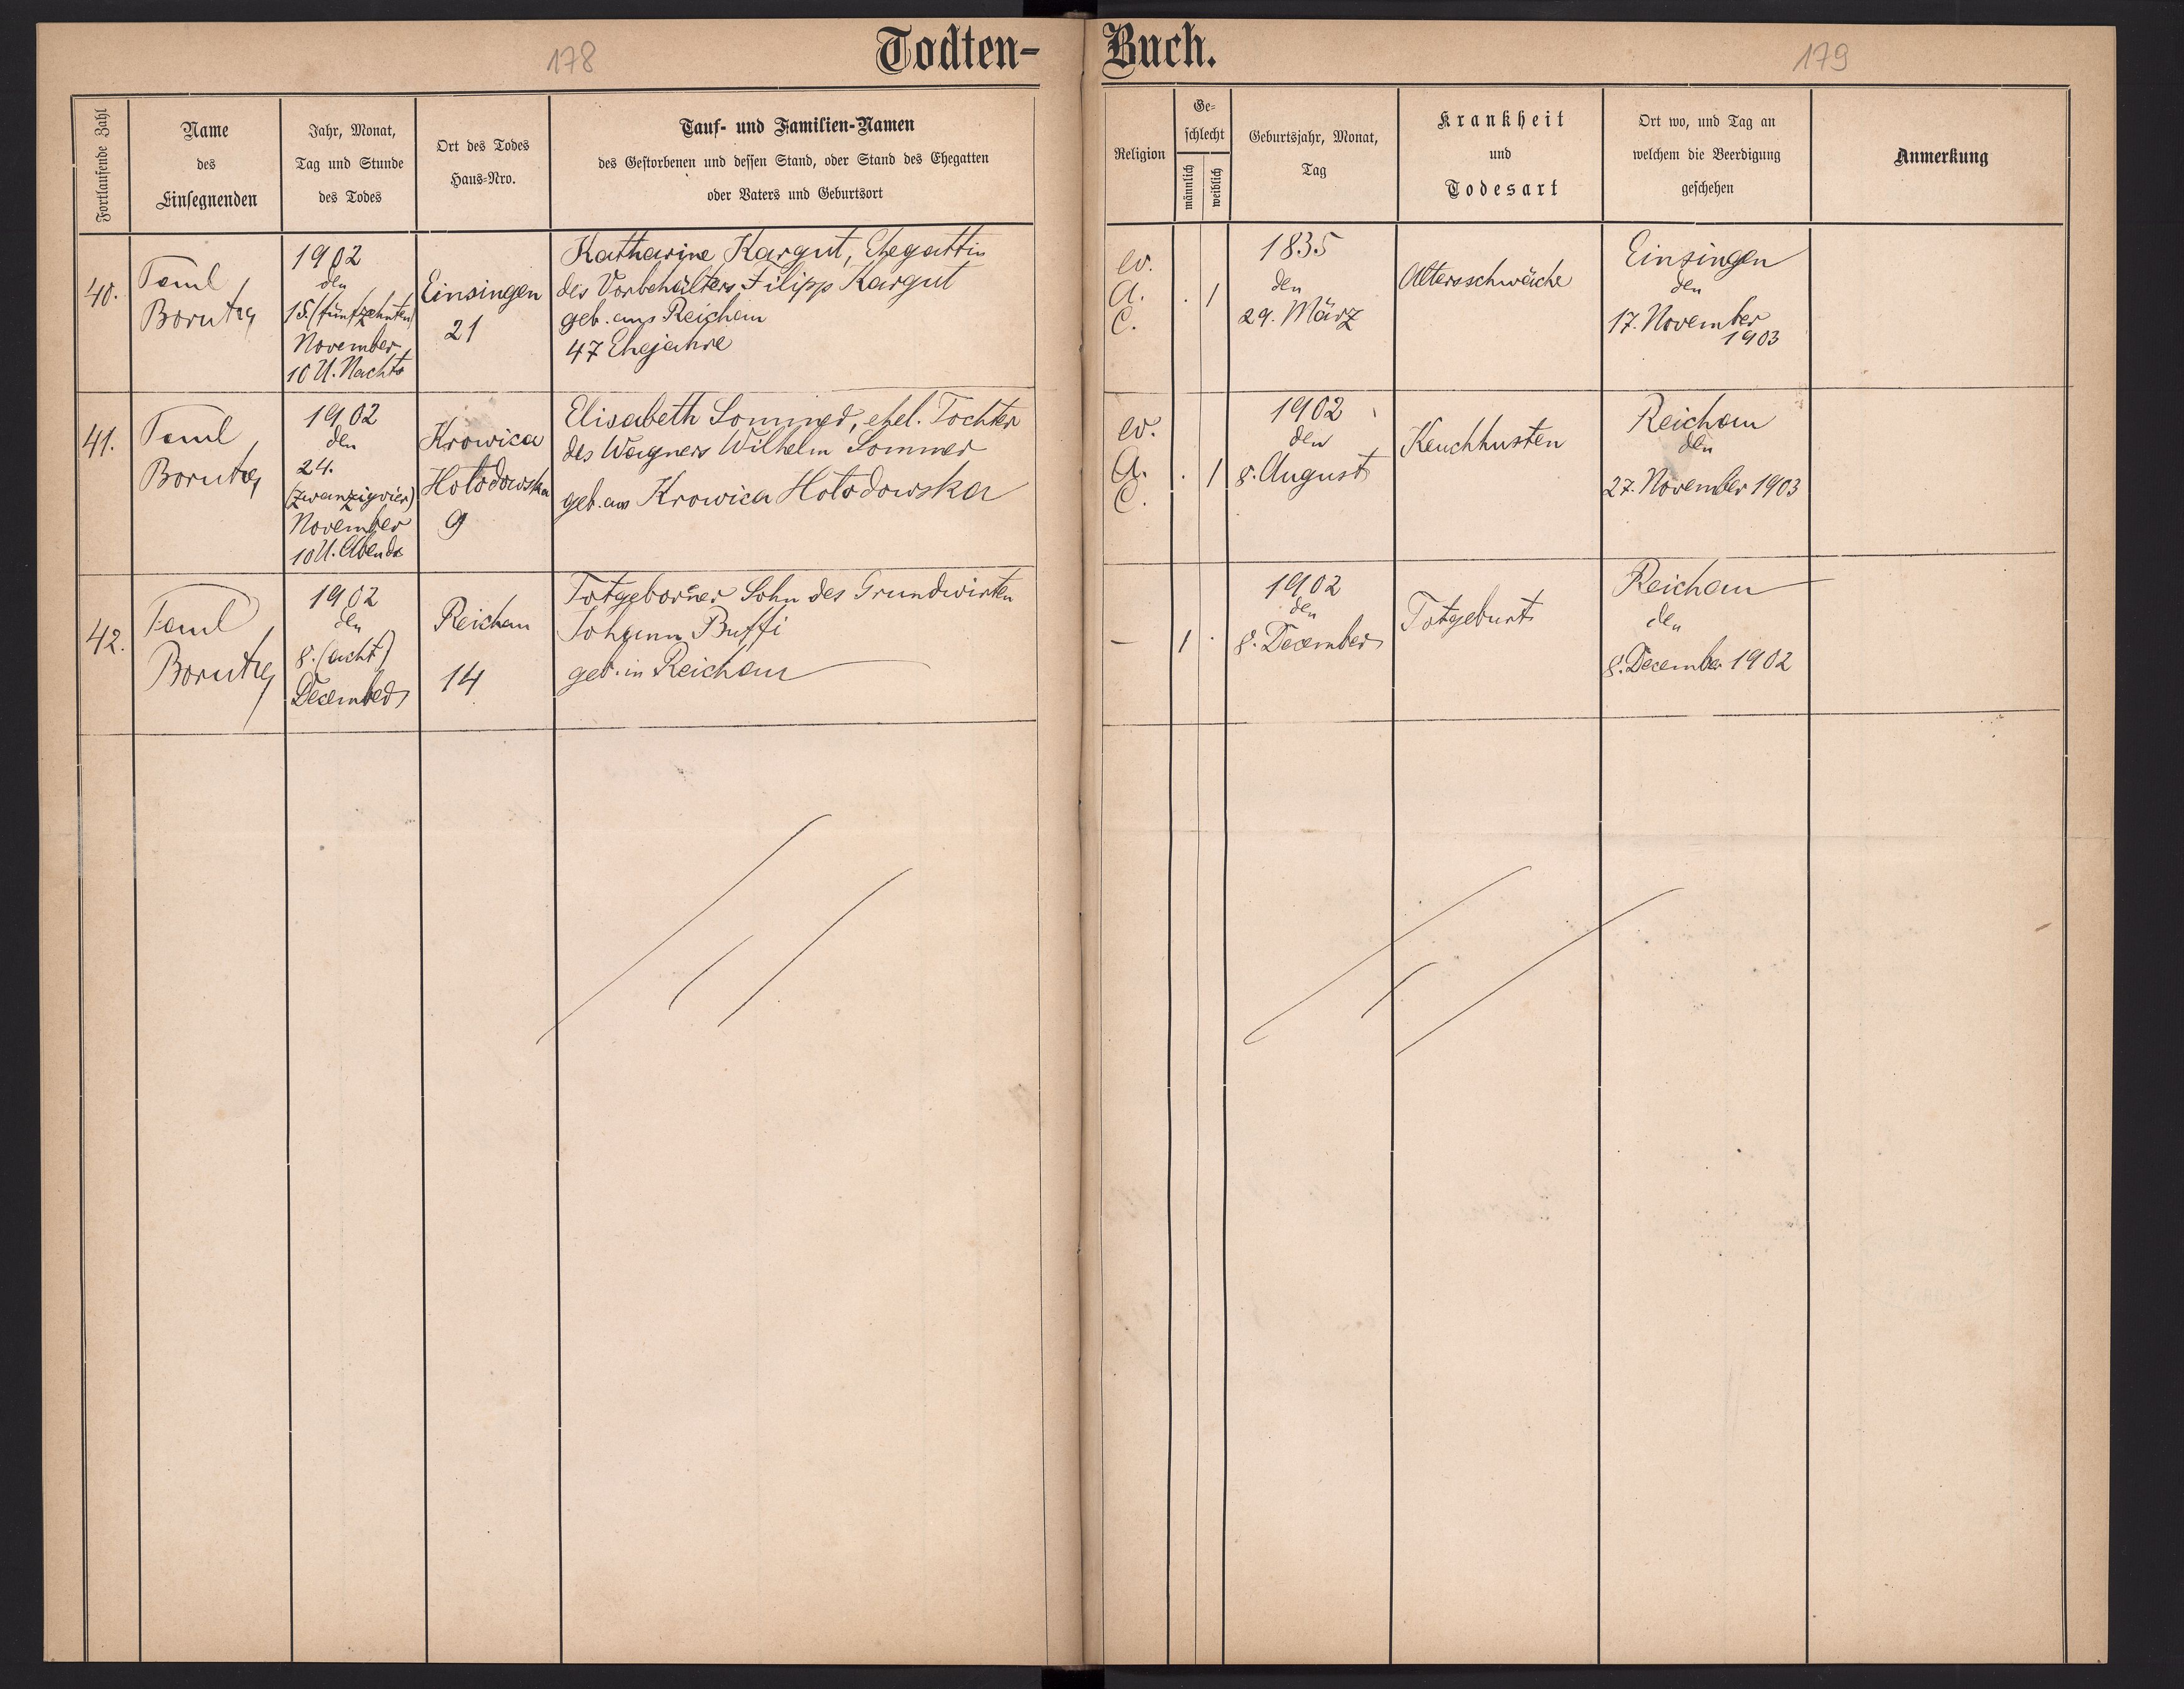 178
Todten-
Buch.
179
Fortlaufende Zahl
Name
des
Einsegnenden
Jahr, Monat,
Tag und Stunde
des Todes
Ort des Todes
Haus-Nro.
Tauf- und Familien-Namen
des Gestorbenen und dessen Stand, oder Stand des Ehegatten
oder Vaters und Geburtsort
Religion
Ge-
schlecht
männlich
weiblich
Geburtsjahr, Monat,
Tag
Krankheit
und
Todesart
Ort wo, und Tag an
welchem die Beerdigung
geschehen
Anmerkung
40.
Paul
Borutzy
1902
den
15. (fünfzehnten)
November
10 U. Nachts
Einsingen
21
Katharine Kargut, Ehegattin
des Vorbehälters Filipp Kargut
geb. aus Reichau
47 Ehejahre
ev.
A.
C.
. 1
1835
den
29. März
Altersschwäche
Einsingen
den
17. November
1903
41.
Paul
Borutzy
1902
den
24.
(zwanzigvier)
November
10 U. Abends
Krowica
Hołodowska
9
Elisabeth Sommer, ehel. Tochter
des Wagners Wilhelm Sommer
geb. aus Krowica Hołodowska
ev.
A.
C.
. 1
1902
den
8. August
Keuchhusten
Reichau
den
27. November 1903
42.
Paul
Borutzy
1902
den
8. (acht)
December
Reichau
14
Totgeborner Sohn des Grundwirten
Johann Buffi
geb. in Reichau
—
1 .
1902
den
8. December
Totgeburt
Reichau
den
8. December 1902